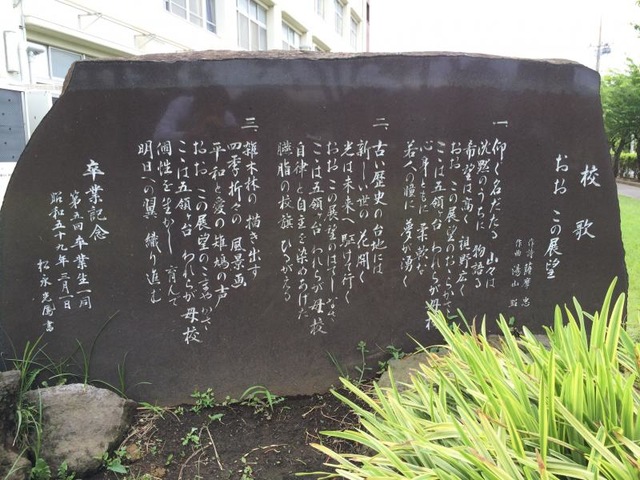 校歌
おお この展望
作詩 薩摩 忠
作曲 湯山 昭
一 仰ぐ名だたる 山々は
沈黙のうちに 物語る
希望は高く 視野広く
おお この展望の
ここは五領ヶ台 われらが母校
心身ともに 柔軟な
若人の瞳に 夢が湧く
二 古い歴史の台地には
新しい世の 花開く
光は未来へ 駈けて行く
おお この展望のはてしなさ
ここは五領ヶ台 われらが母校
自律と自主を染めあげた
臙脂の校旗 ひるがえる
三 雑木林の 描き出す
四季折々の 風景画
平和と愛の 雄鳩の声
おお この展望のこまやかさ
ここは五領ヶ台 われらが母校
個性を生かし 育んで
明日への翼 織り進む
卒業記念
第五回 卒業生一同
昭和五十九年 三月一日
松永 書